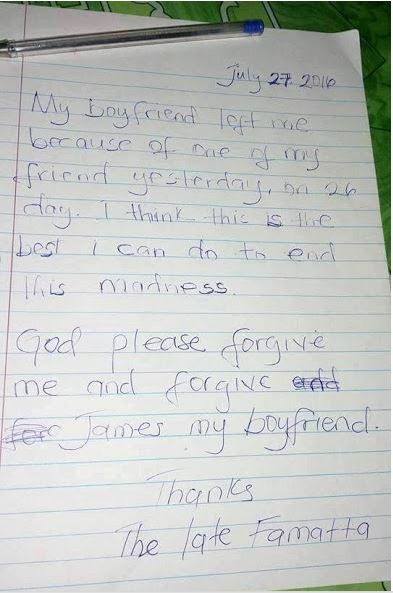 July 27. 2016
My boyfriend left me
because of one of my
friend yesterday, on 26
day. I think this is the
best i can do to end
this madness.
God please forgive
me and forgive and
for James my boyfriend.
Thanks
The late Famatta